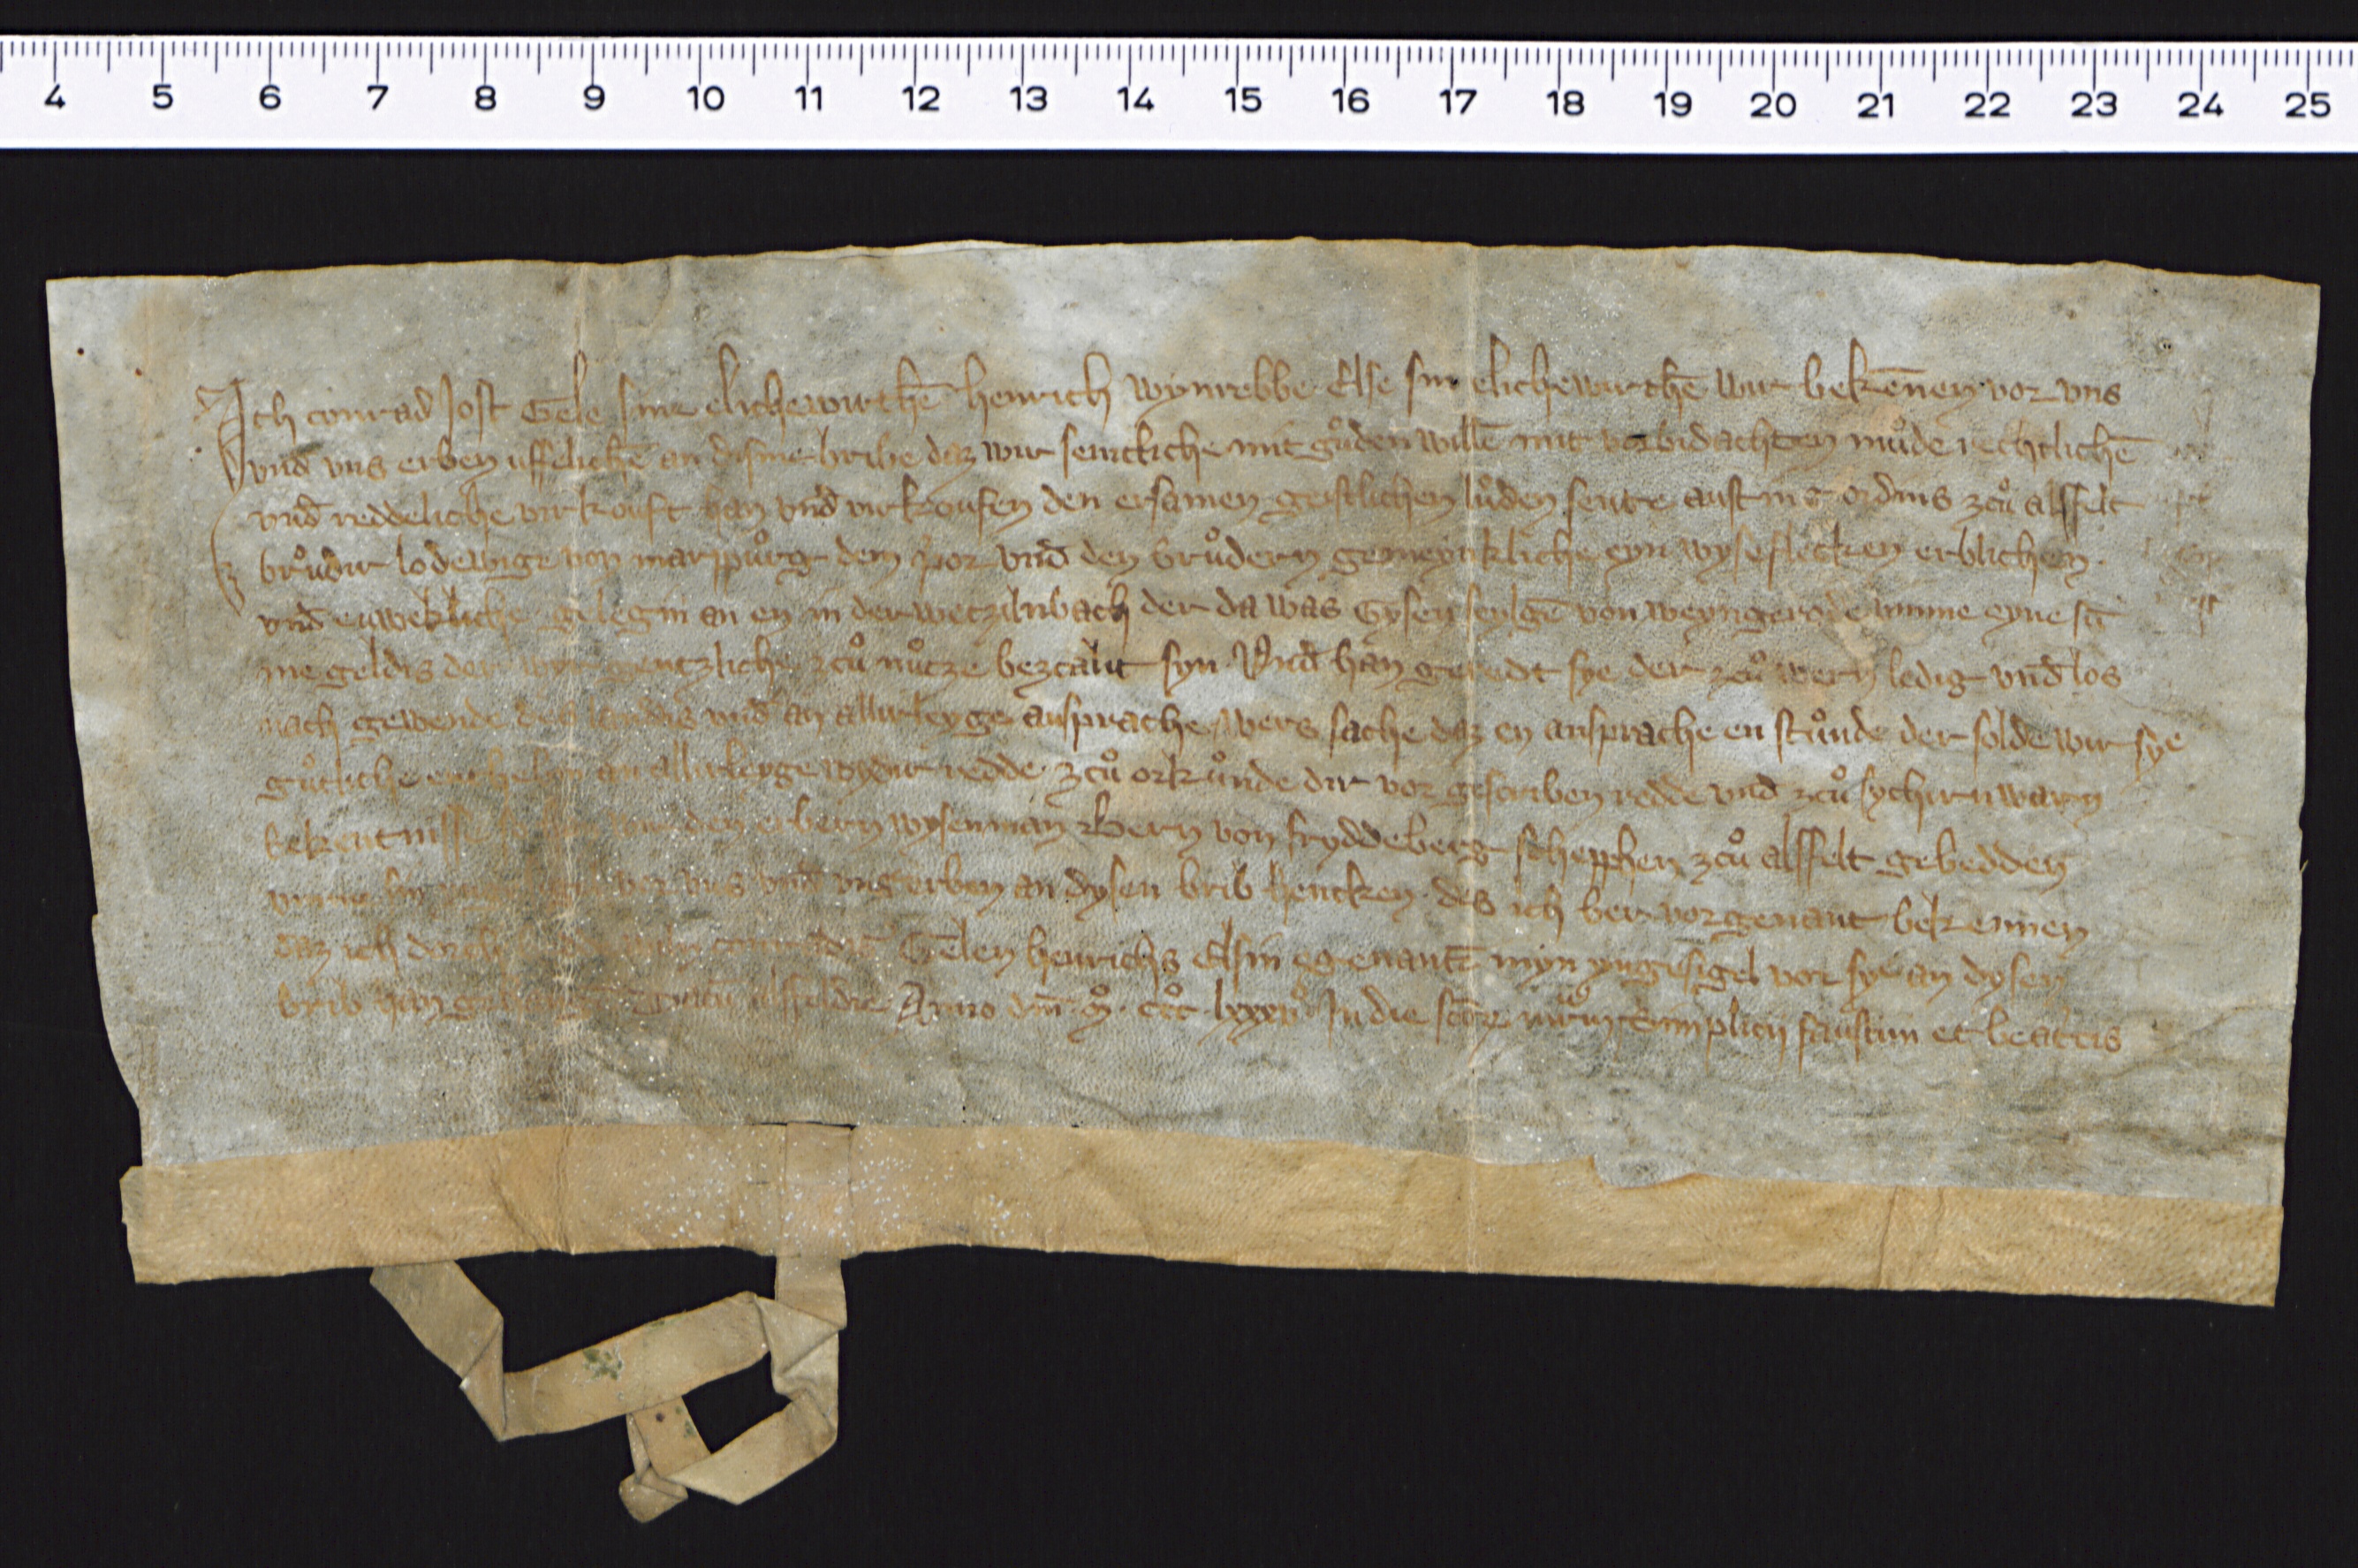 4 5 6 7 8 9 10 11 12 13 14 15 16 17 18 19 20 21 22 23 24 25
Ich conrad Jost Gele sine elichewirthē henrich wynrebbe Else sin elichewirthē wir bekēnen vor vns
vnd vns erben uffelichē an disme bribe daz wir semtliche mit gůden willē mit vorbidachten můde rechtlichē
vnd reddeliche virkouft han vnd virkoufen den ersamen geistlichen lůden sente austins ordins zců alsfelt
brůdir lodewige von marppůrg dem p̄or vnd den brůdern gemeynkliche eyn wyseflecken erblichen
vnd ewekliche gelegin an en in der wetzilnbach der da was Gysen seylgē von weyngerode umme eyne sū
me geldis der wir gentzliche zců nůtze bezcalit syn vnd han geredt sye der zců wern ledig vnd los
nach gewende des landis vnd an allirleyge ansprache wers sache daz en ansprache en stůnde der solde wir sye
gůtliche enthebin an allirleyge wydir redde zců orkůnde dir vor gescriben redde vnd zců sychirn warn
bekentnisse wir den erbern wysen man Bern von fryddeberg scheppfen zců alsfelt gebedden
vor vns vnd vns erben an dysen brib hencken des ich ber vorgenant bekennen
daz ich dorch Gelen henrichs Elsin egenantē myn yngesigel vor sye an dysen
brib han gehangē datū alsfeldie Anno dm̄ mº ccc lxxxiiº In die scōr mr̄m Simplicii faustini et beatris